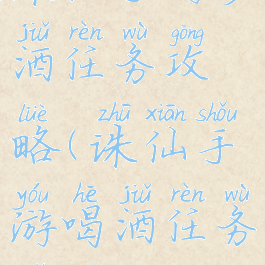 jiǔ rèn wù gōng
酒任务攻
lüè zhū xiān shǒu
略(诛仙手
yóu hē jiǔ rèn wù
游喝酒任务